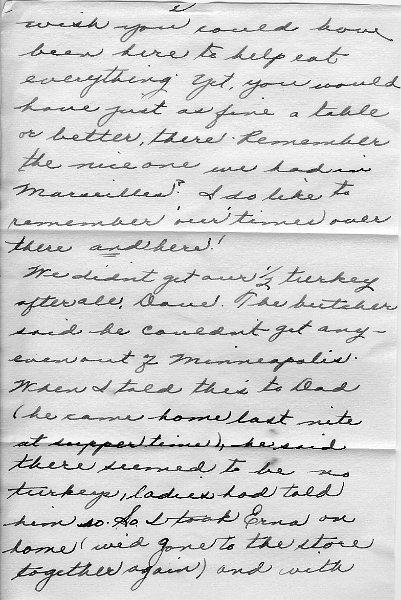 wish you could have
been here to help eat
everything. Yet, you would
have just as fine a table
or better, there. Remember
the nice one we had in
Marseilles? I so like to
remember 'our' times over
there and here!
We didnt get our 1/2 turkey
after all, Dave. The butcher
said he couldn't get any -
even out of Minneapolis.
When I told this to Dad
(he came home last nite
at supper time), he said
there seemed to be no
turkeys, ladies had told
him so. So, I took Erna on
home (we'd gone to the store
together again) and with